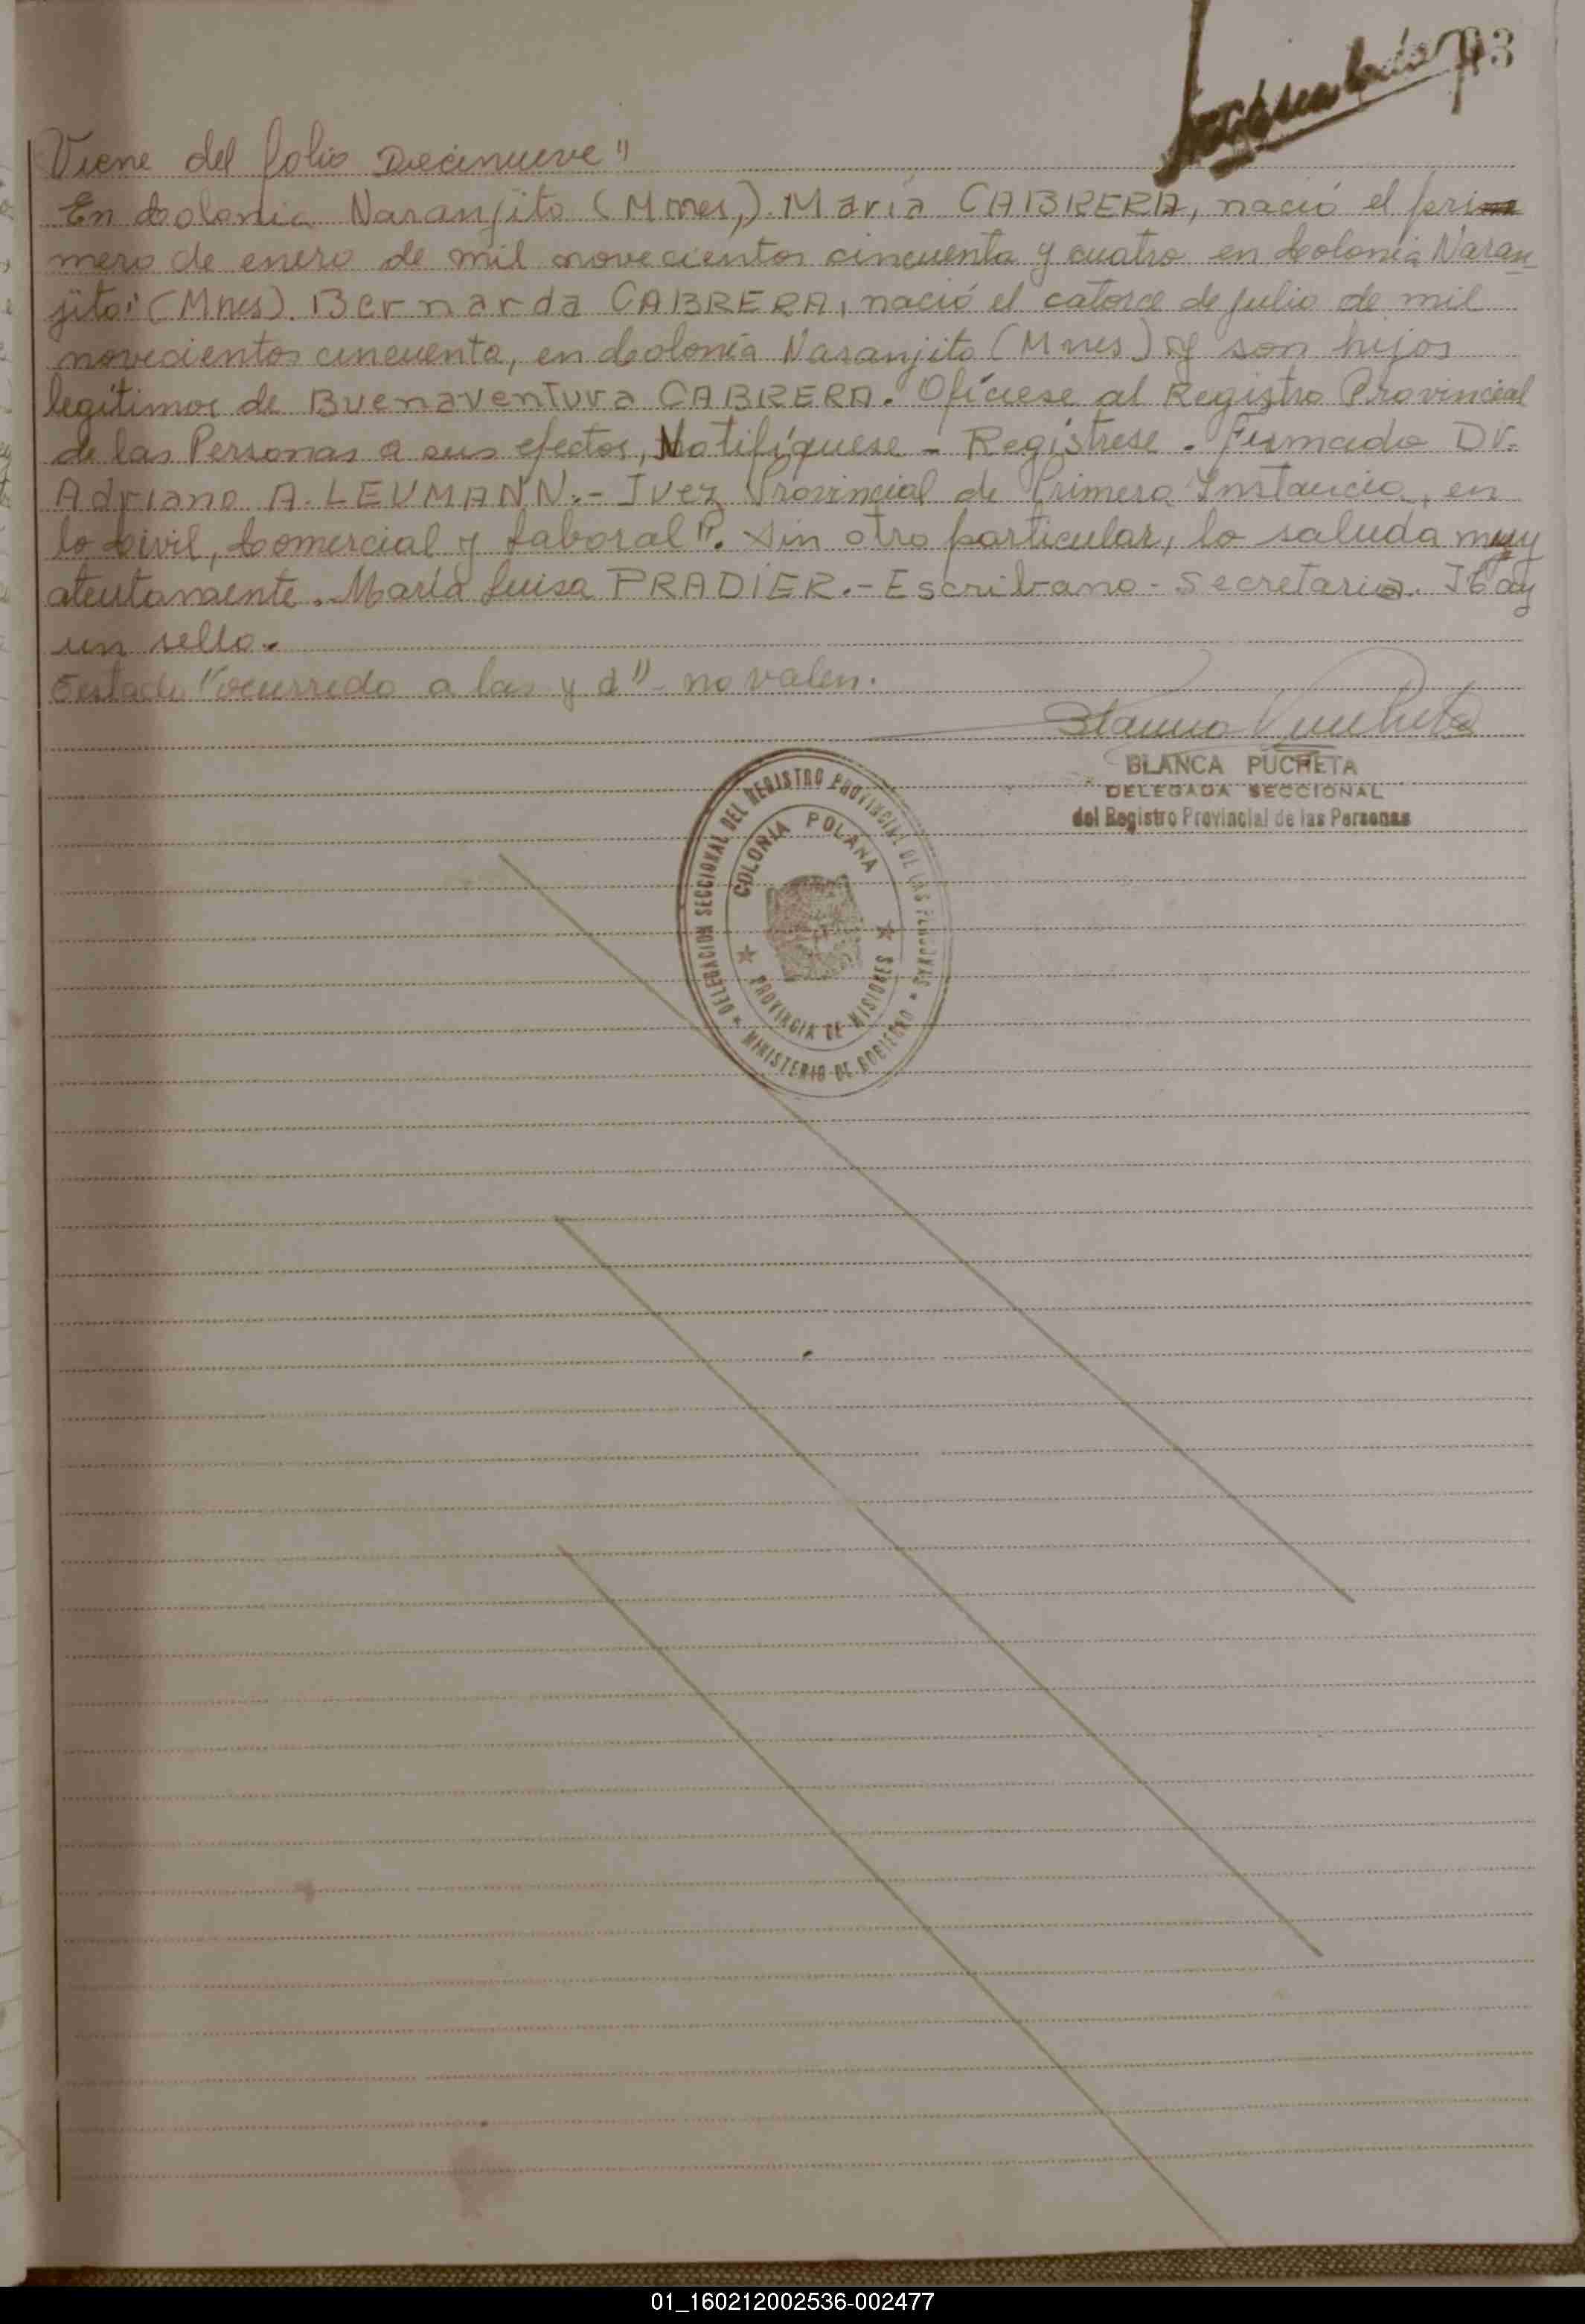 93
Viene del folio Diecinueve"
En Colonia Naranjito (Mnes,). María CABRERA, nació el pri
mero de enero de mil novecientos cincuenta y cuatro en Colonia Naran
jito" (Mnes). Bernarda CABRERA, nació el catorce de julio de mil
novecientos cincuenta, en Colonia Naranjito (Mnes) y son hijos
legítimos de Buenaventura CABRERA. Ofíciese al Registro Provincial
de las Personas a sus efectos, Notifíquese - Regístrese. Firmado Dr.
Adriano A. LEUMANN.- Juez Provincial de Primera Instancia, en
lo Civil, Comercial y Laboral". Sin otro particular, lo saluda muy
atentamente. María Luisa PRADIER.- Escribano - Secretaria. Hay
un sello.
Testado "ocurrido a las y d" - no valen.
BLANCA PUCHETA
DELEGADA SECCIONAL
del Registro Provincial de las Personas
DELEGACION SECCIONAL DEL REGISTRO PROVINCIAL DE LAS PERSONAS
COLONIA POLANA
PROVINCIA DE MISIONES
MINISTERIO DE GOBIERNO
01_160212002536-002477